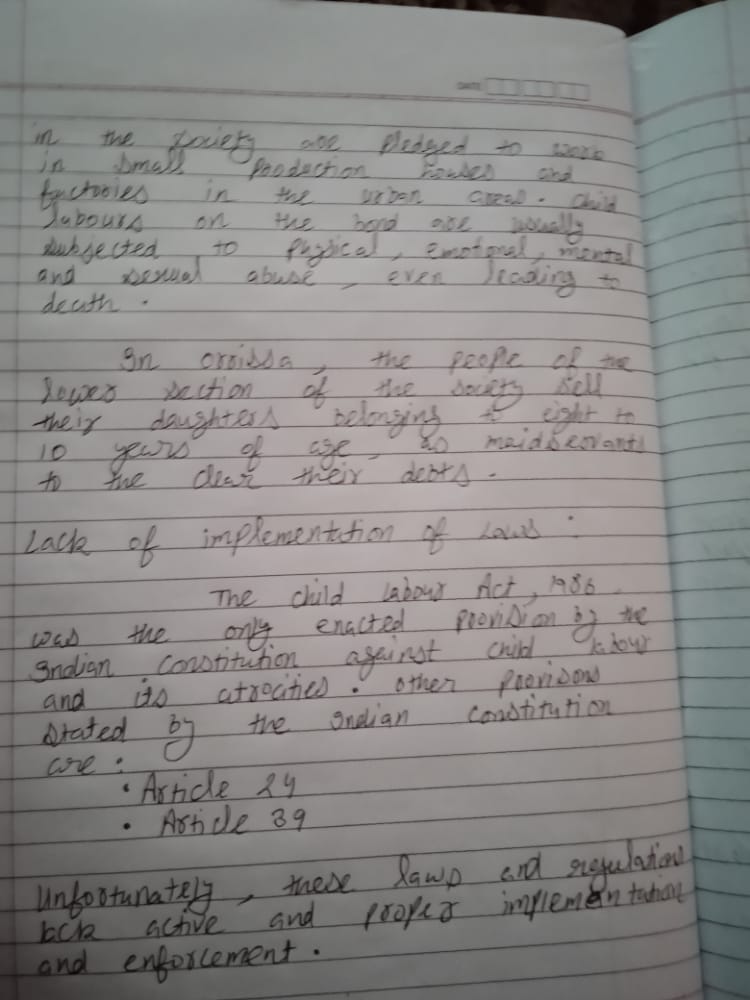 DATE
in the society are pledged to work
in small production houses and
factories in the urban areas. Child
labours on the bond are usually
subjected to physical, emotional, mental
and sexual abuse, even leading to
death.
In orissa, the people of the
lower section of the society sell
their daughters belonging to eight to
10 years of age, as maidservants
to the clear their debts.
Lack of implementation of Laws :
The child labour Act, 1986
was the only enacted provision by the
Indian constitution against child labour
and its atrocities. other provisons
stated by the Indian constitution
are :
• Article 24
• Article 39
Unfortunately, these laws and regulations
lack active and proper implementation
and enforcement.